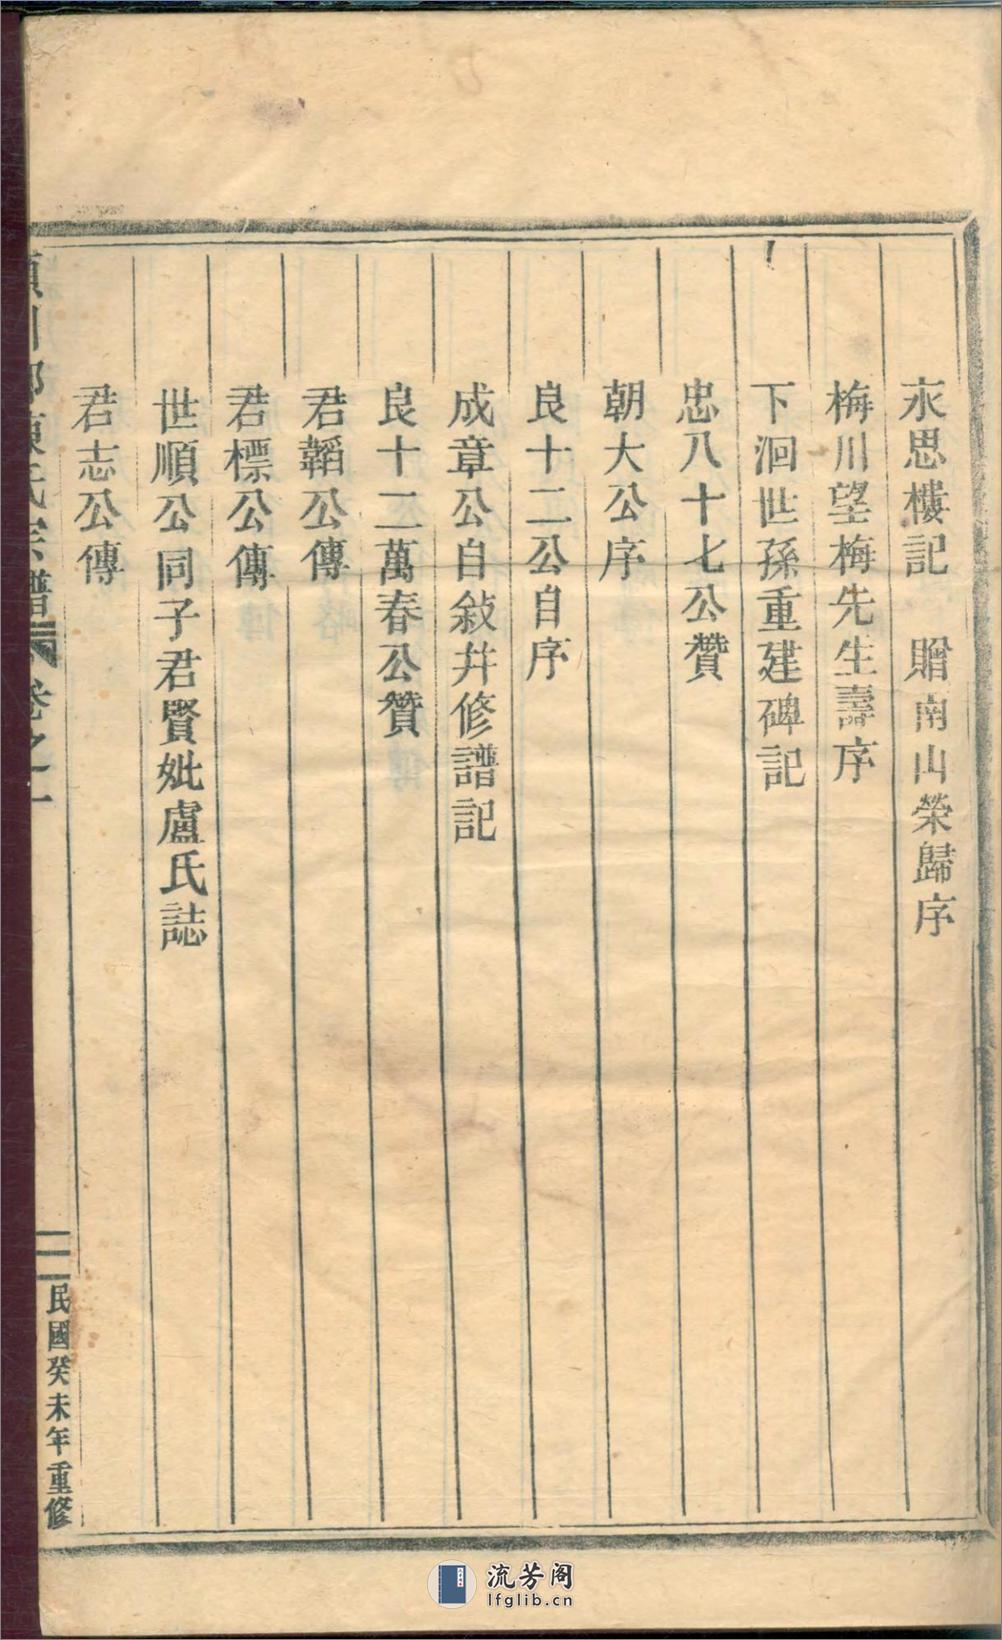 永思樓記　贈南山榮歸序
梅川望梅先生壽序
下洄世孫重建碑記
忠八十七公贊
朝大公序
良十二公自序
成章公自敍并修譜記
良十二萬春公贊
君韜公傳
君標公傳
世順公同子君賢妣盧氏誌
君志公傳
潁川郡陳氏宗譜 卷之一
二
民國癸未年重修
流芳阁
lfglib.cn